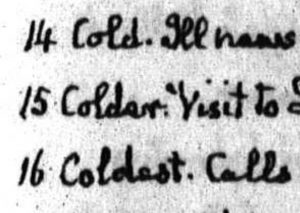 14 Cold. Ill news
15 Colder. "Visit to
16 Coldest. Calls